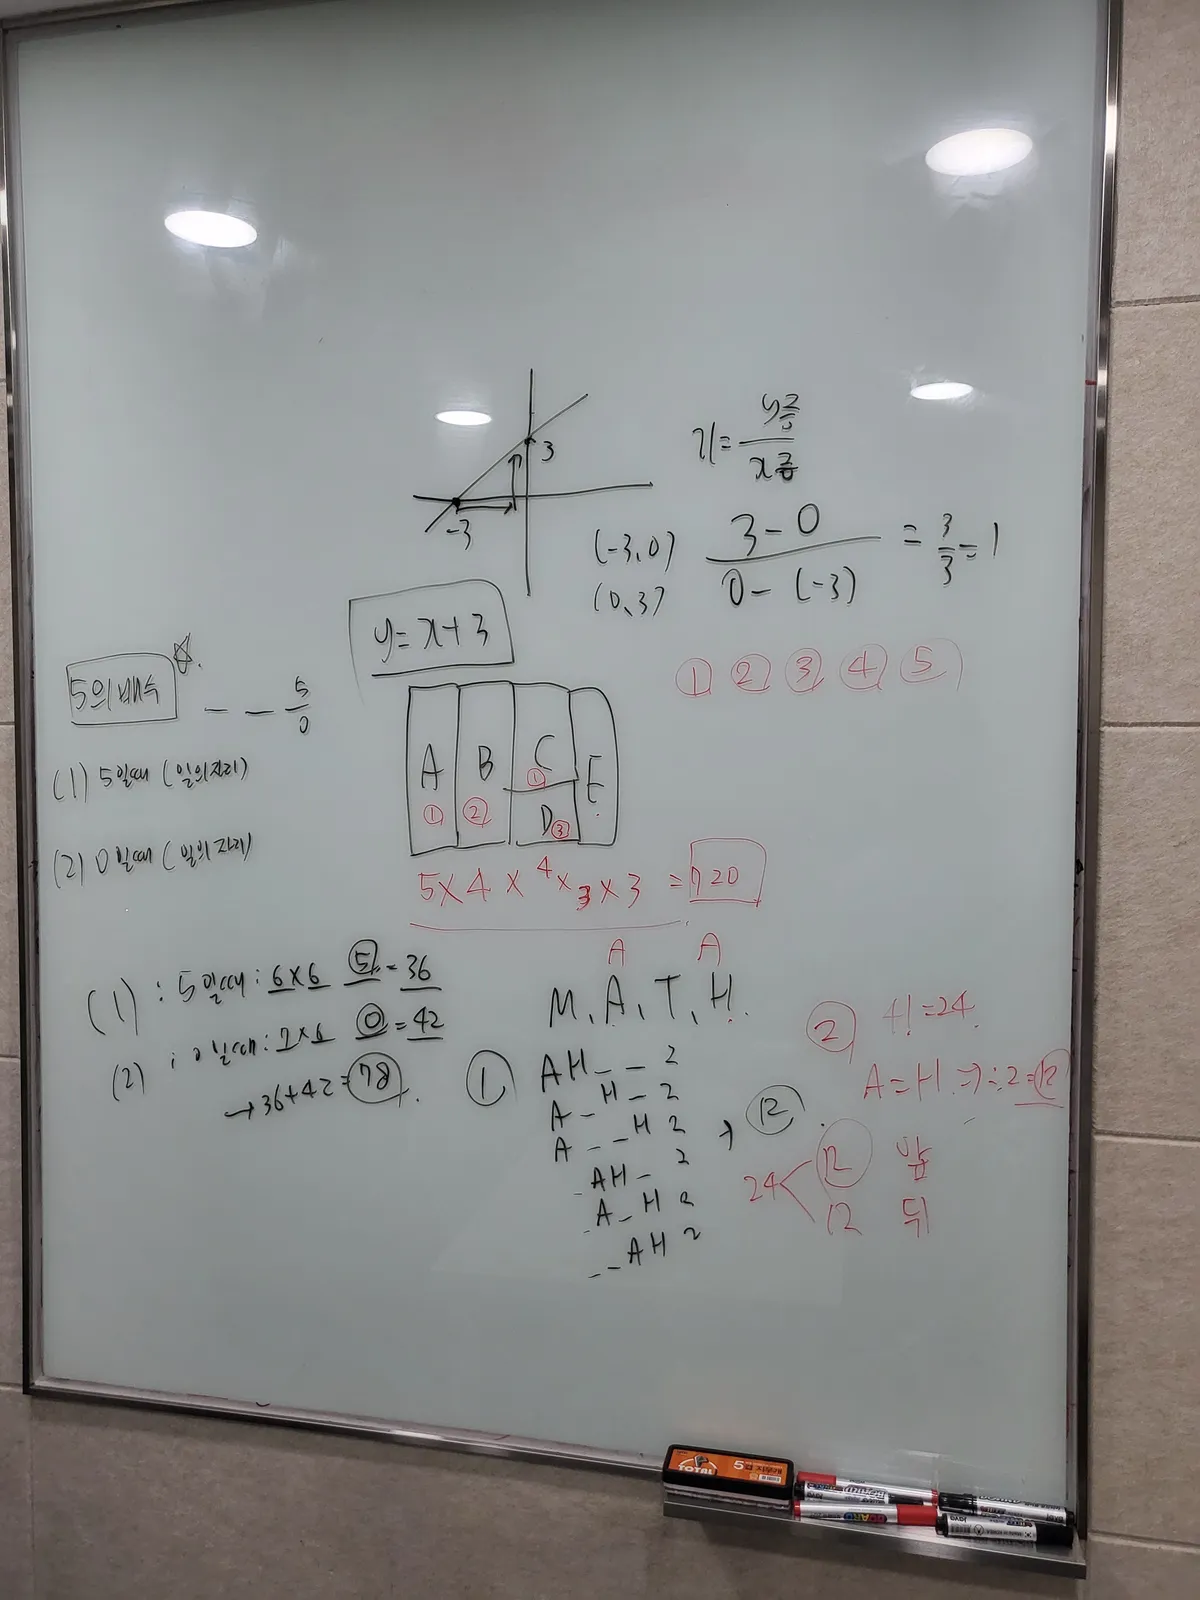 3
-3
기=
y증
x증
(-3,0)
(0,3)
3-0
0-(-3)
= 3/3 = 1
y=x+3
① ② ③ ④ ⑤
5의 배수 ☆.
_ _ 5
0
(1) 5일때 (일의자리)
(2) 0일때 (일의자리)
A B C E
① ② ①
D ③
5×4×4×3×3 = 720
A A
M, A, T, H
(1) : 5일때: 6×6 ⑤ = 36
(2) : 0일때: 7×6 ⓪ = 42
→36+42=78.
①
AH_ _ 2
A_H_ 2
A_ _H 2
_AH_ 2
_A_H 2
_ _AH 2
→ 12.
② 4!=24
A=H ⇒ ÷2=12
24
12 앞
12 뒤
TOTAL
BOARD
java